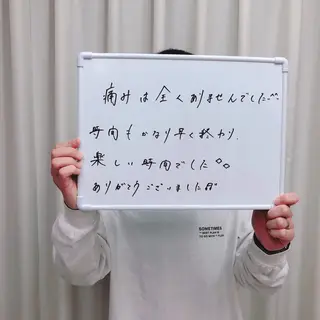 痛みは全くありませんでした^^
時間もかなり早く終わり、
楽しい時間でした◇◇
ありがとうございました
SOMETIMES